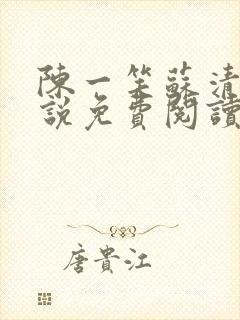 陳一笑蘇清
說免費閱讀
唐貴江